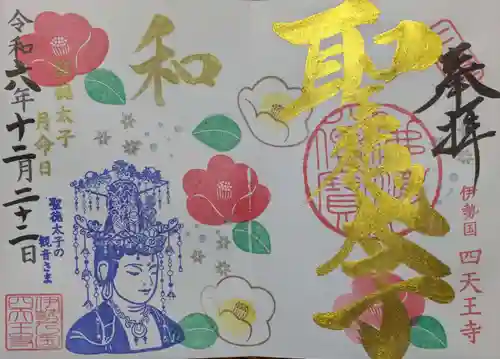 奉拝
聖徳太子
伊勢国 四天王寺
和
聖徳太子
月命日
令和六年十二月二十二日
聖徳太子の
観音さま